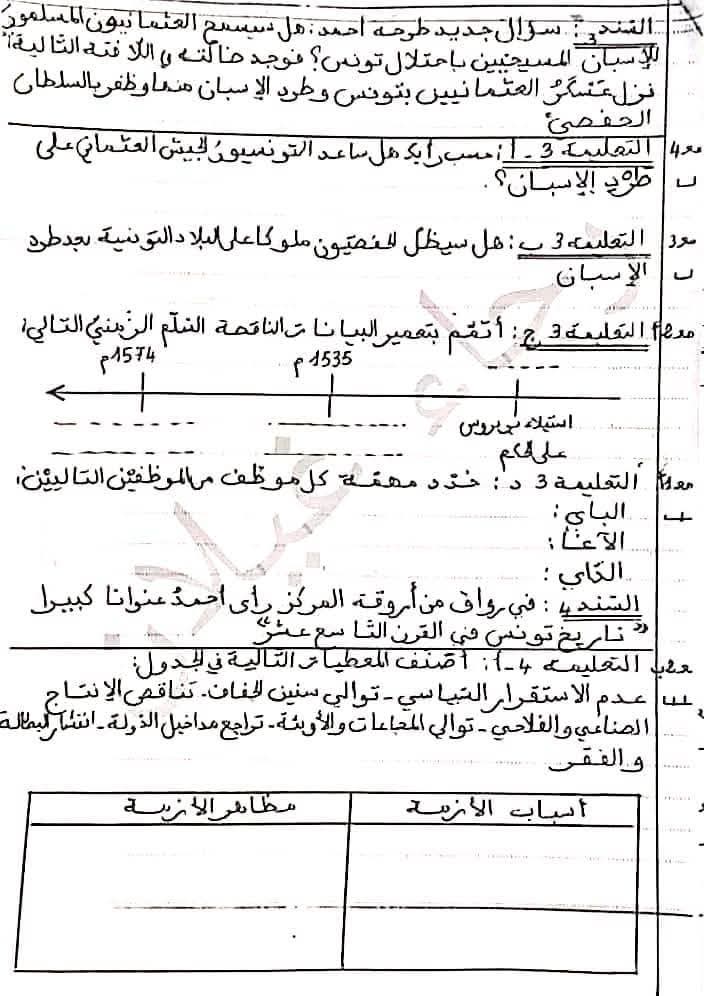 السّند 3 : سؤال جديد طرحه احمد: هل سيسمح العثمانيون المسلمون
للإسبان المسيحيين باحتلال تونس؟ فوجد ضالّته في اللافتة التالية:
نزل عسكرُ العثمانيين بتونس وطرد الإسبان منها وظفر بالسلطان
الحفصي
مع4 التعليمة 3 - أ : حسب رأيك هل ساعد التونسيون الجيش العثماني على
ب طرد الإسبان؟.
مع3 التعليمة 3 ب : هل سيظلّ الحفصيّون ملوكا على البلاد التونسية بعد طرد
ب الإسبان
مع2أ التعليمة 3 ج : أتمّم بتعمير البيانات الناقصة السّلّم الزمنيّ التالي:
1574م 1535م ------
استيلاء بربروس
على الحكم
مع1أ التعليمة 3 د : حدّد مهمّة كل موظف من الموظفين التاليين:
الباي :
الآغا :
الدّاي :
السّند 4 : في رواق من أروقة المركز رأى احمدُ عنوانا كبيرا
"تاريخ تونس في القرن التاسع عشر"
مع2ب التعليمة 4 - أ : أصنّف المعطيات التالية في الجدول:
عدم الاستقرار السّياسي - توالي سنين الجفاف - تناقص الإنتاج
الصناعي والفلاحي - توالي المجاعات والأوبئة - تراجع مداخيل الدّولة - انتشار البطالة
والفقر
أسباب الأزمة مظاهر الأزمة